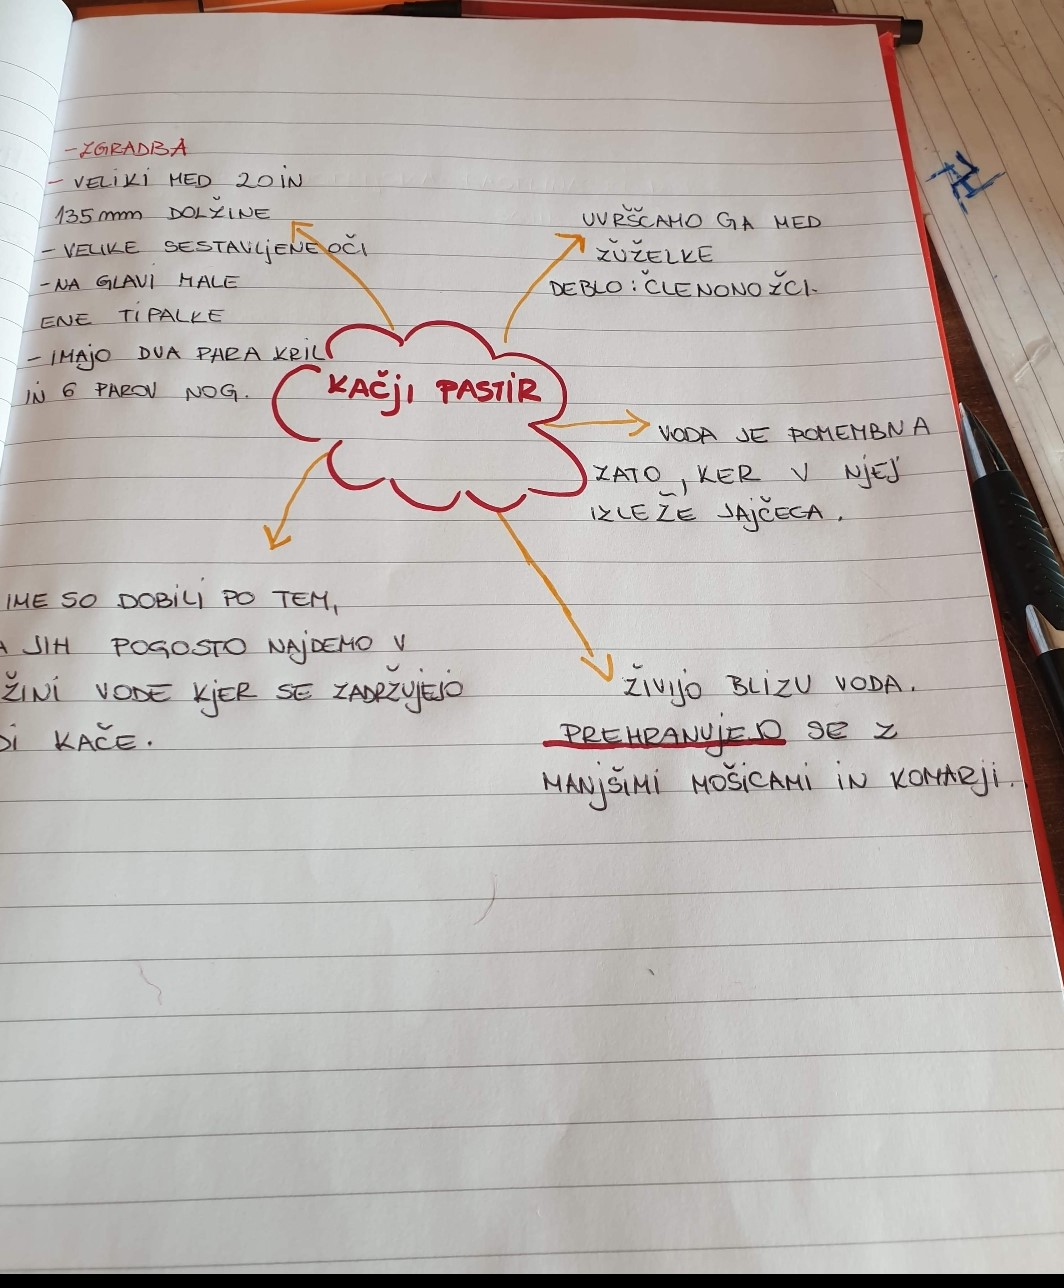 - ZGRADBA
- VELIKI MED 20 IN
135 mm DOLŽINE
- VELIKE SESTAVLJENE OČI
- NA GLAVI MALE
ENE TIPALKE
- IMAJO DVA PARA KRIL
IN 6 PAROV NOG.
UVRŠČAMO GA MED
ŽUŽELKE
DEBLO: ČLENONOŽCI.
KAČJI PASTIR
VODA JE POMEMBNA
ZATO, KER V NJEJ
IZLEŽE JAJČECA.
IME SO DOBILI PO TEM,
A JIH POGOSTO NAJDEMO V
ŽINI VODE KJER SE ZADRŽUJEJO
DI KAČE.
ŽIVIJO BLIZU VODA.
PREHRANUJEJO SE Z
MANJŠIMI MOŠICAMI IN KOMARJI.